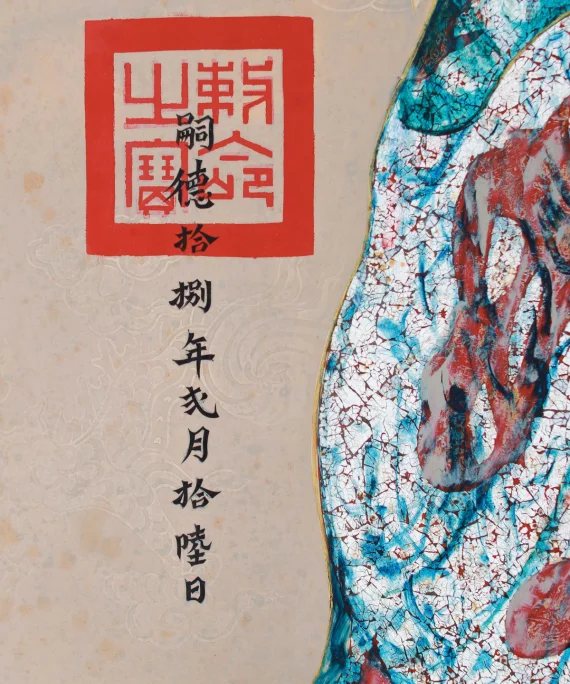 敕命
之寶
嗣德拾捌年弍月拾陸日